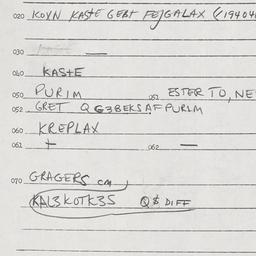 020 KOYN KASTE GEBT FEJGALAX (19404
030 —
040 KASTE
050 PURIM 051 ESTER TO, NE
052 GRET QG3BEKSAF PURIM
060 KREPLAX
061 + 062 —
070 GRAGERS cm,
KAL3KOTK3S Q$ DIFF